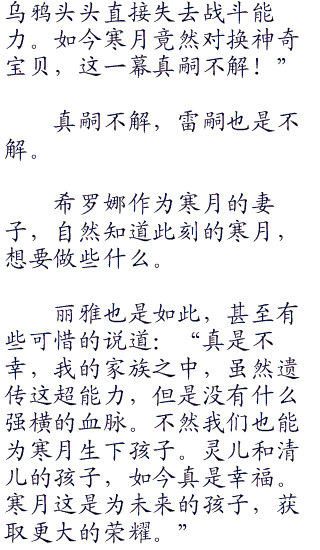 乌鸦头头直接失去战斗能
力。如今寒月竟然对换神奇
宝贝，这一幕真嗣不解！”
真嗣不解，雷嗣也是不
解。
希罗娜作为寒月的妻
子，自然知道此刻的寒月，
想要做些什么。
丽雅也是如此，甚至有
些可惜的说道：“真是不
幸，我的家族之中，虽然遗
传这超能力，但是没有什么
强横的血脉。不然我们也能
为寒月生下孩子。灵儿和清
儿的孩子，如今真是幸福。
寒月这是为未来的孩子，获
取更大的荣耀。”